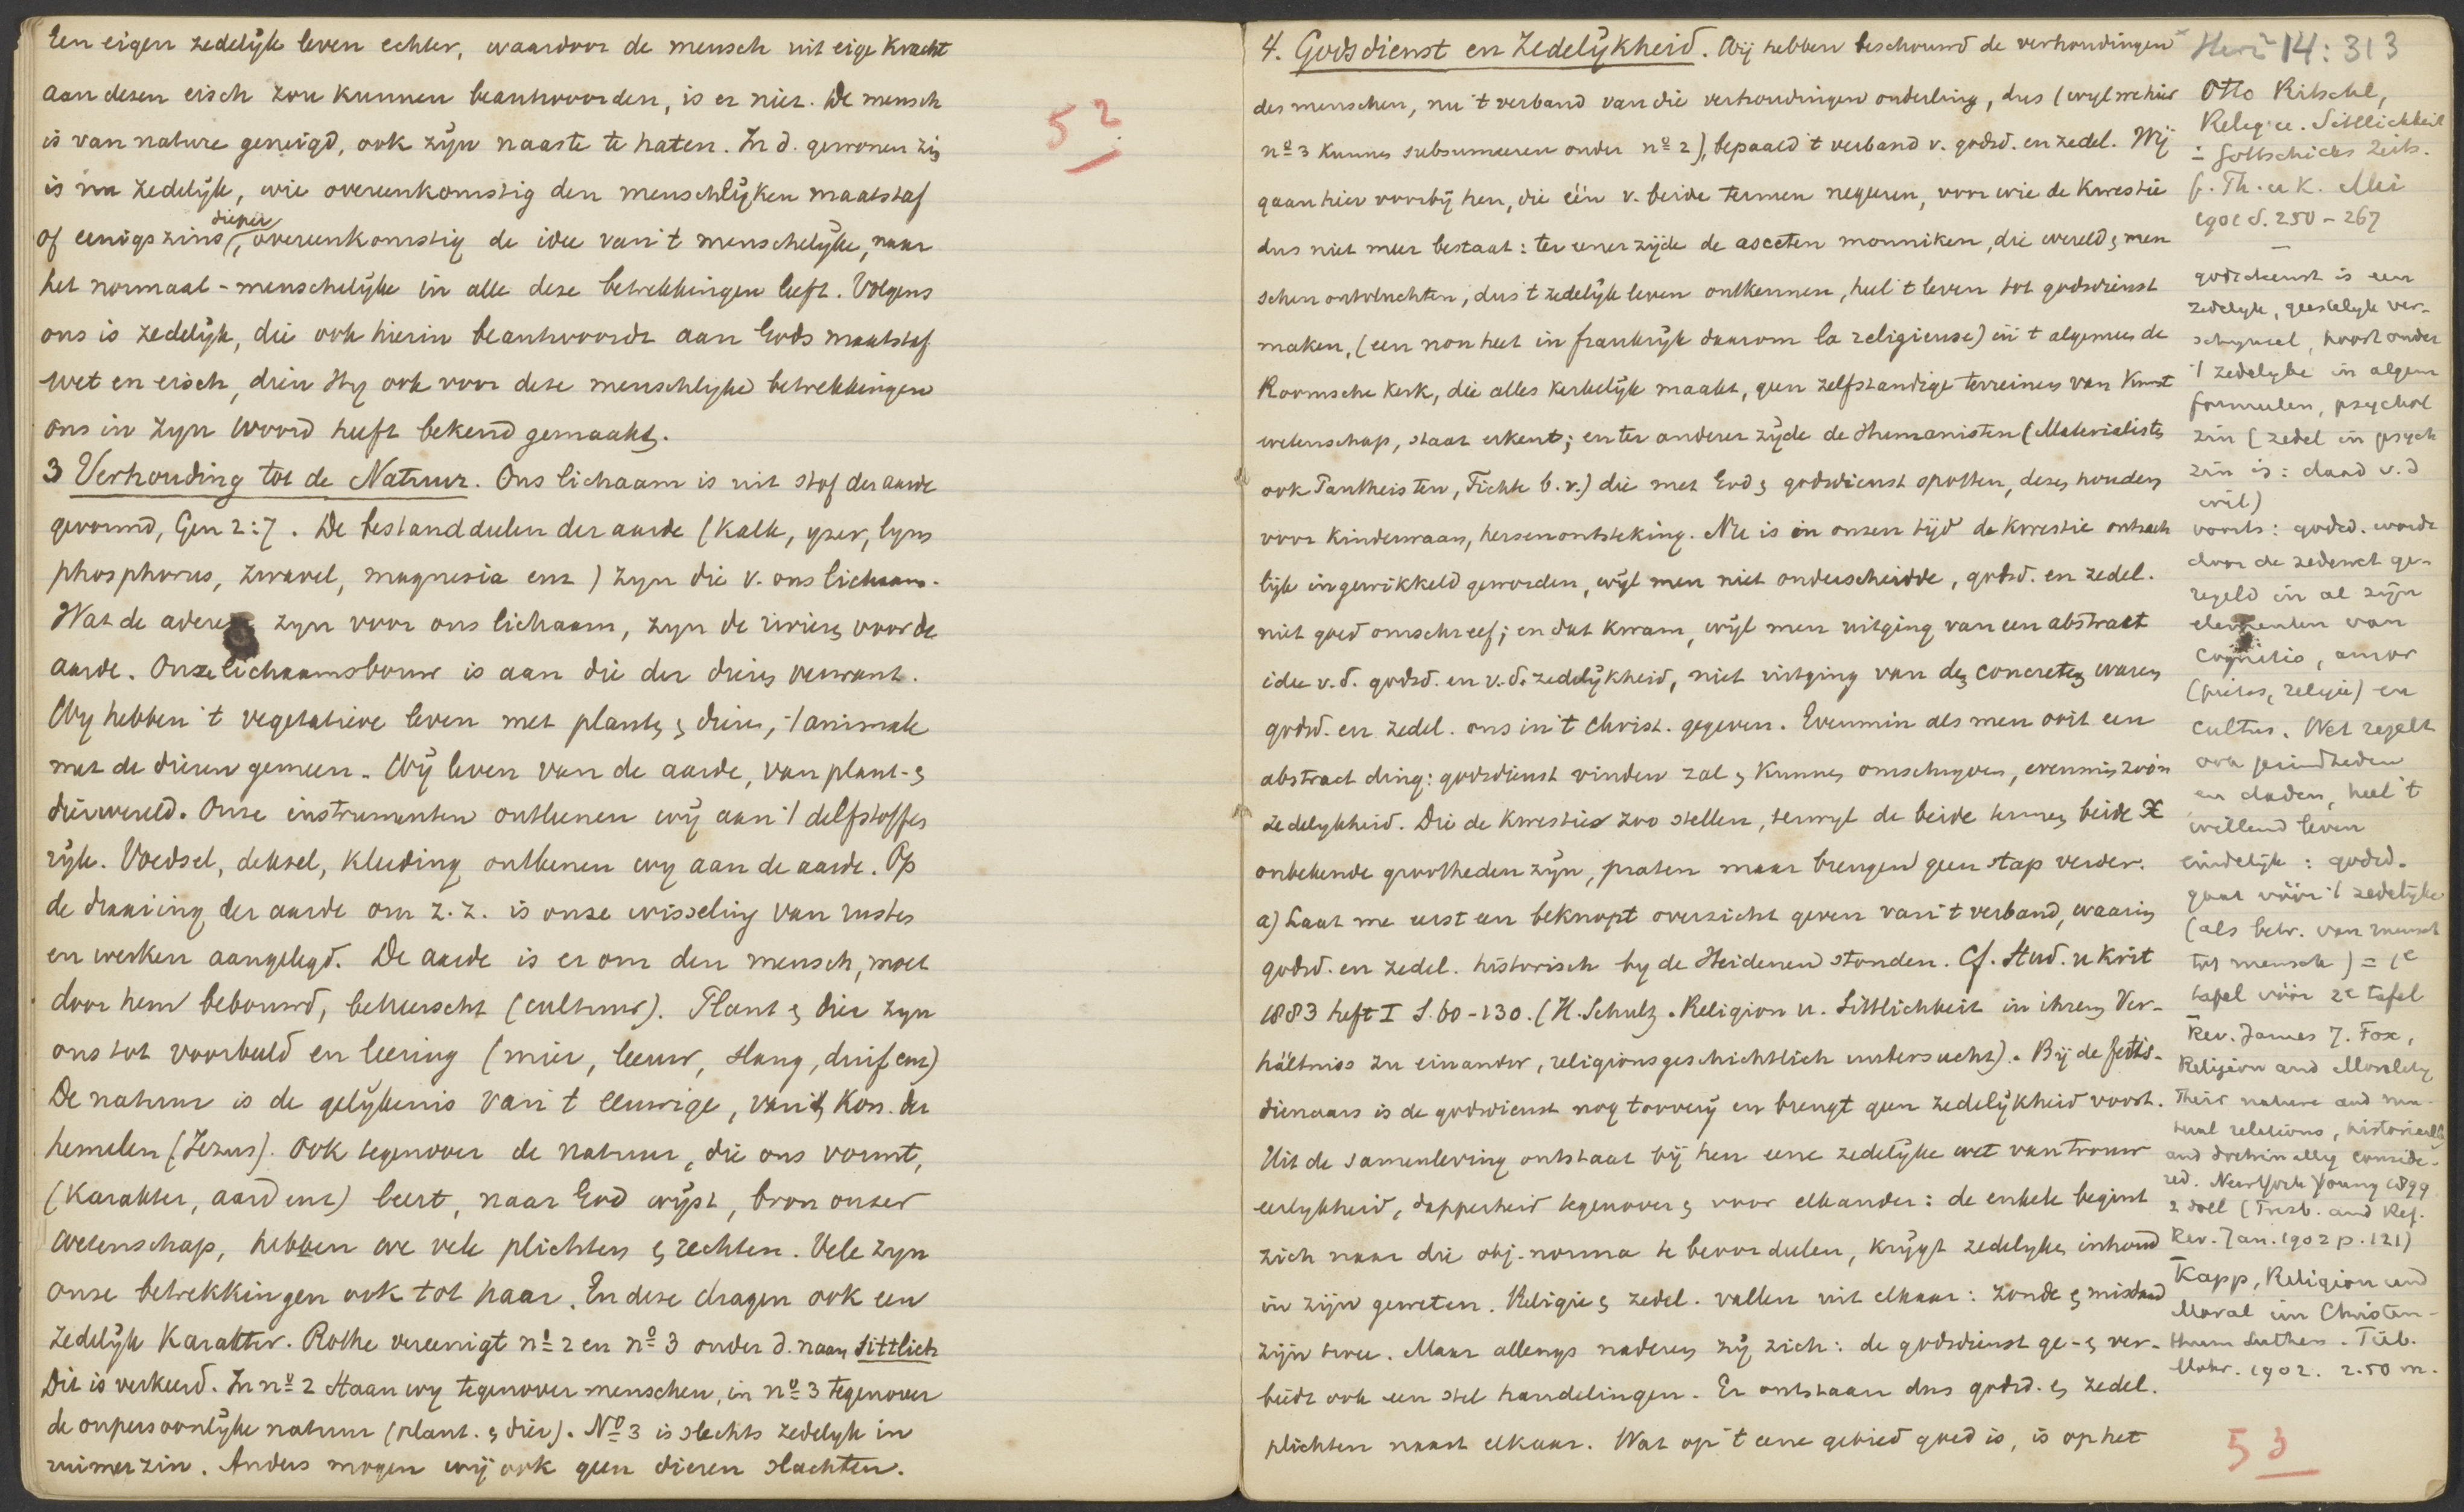 Een eigen zedelijk leven echter, waardoor de mensch uit eige kracht
aan dezen eisch zou kunnen beantwoorden, is er niet. De mensch
is van nature geneigd, ook zijn naaste te haten. In d. gewonen zin
is nu zedelijk, wie overeenkomstig den menschlijken maatstaf
dieper
of eenigszins, overeenkomstig de idee van 't menschelijke, naar
het normaal-menschelijke in alle deze betrekkingen leeft. Volgens
ons is zedelijk, die ook hierin beantwoordt aan Gods maatstaf
wet en eisch, dien Hij ook voor deze menschlijke betrekkingen
ons in Zijn Woord heeft bekend gemaakt.
3 Verhouding tot de Natuur. Ons lichaam is uit stof der aarde
gevormd, Gen 2:7. De bestanddeelen der aarde (kalk, yzer, lym
phosphorus, zwavel, magnesia enz) zyn die v. ons lichaam.
Wat de aderen zyn voor ons lichaam, zyn de rivieren voor de
aarde. Onze lichaamsbouw is aan die der dieren verwant.
Wy hebben 't vegetatieve leven met planten & dieren, 't animale
met de dieren gemeen. Wij leven van de aarde, van plant- &
dierwereld. Onze instrumenten ontleenen wij aan 't delfstoffen
rijk. Voedsel, deksel, kleeding ontleenen wy aan de aarde. Op
de draaiing der aarde om z. z. is onze wisseling van rusten
en werken aangelegd. De aarde is er om den mensch, moet
door hem bebouwd, beheerscht (cultuur). Plant & dier zyn
ons tot voorbeeld en leering (mier, leeuw, slang, duif enz)
De natuur is de gelijkenis van 't eeuwige, van 't Kon. der
hemelen (Jezus). Ook tegenover de natuur, die ons vormt,
(karakter, aard enz) leert, naar God wijst, bron onzer
wetenschap, hebben we vele plichten & rechten. Vele zyn
onze betrekkingen ook tot haar. En deze dragen ook een
zedelijk karakter. Rothe vereenigt no 2 en no 3 onder d. naam sittlich
Dit is verkeerd. In no 2 staan wy tegenover menschen, in no 3 tegenover
de onpersoonlijke natuur (plant. & dier). No 3 is slechts zedelyk in
ruimer zin. Anders mogen wij ook geen dieren slachten.
52
4. Godsdienst en Zedelijkheid. Wij hebben beschouwd de verhoudingen
des menschen, nu 't verband van die verhoudingen onderling, dus (wyl we hier
no 3 kunnen subsumeeren onder no 2), bepaald 't verband v. godsd. en zedel. Wij
gaan hier voorbij hen, die één v. beide termen negeeren, voor wie de kwestie
dus niet meer bestaat: ter eener zijde de asceten monniken, die wereld & men
schen ontvluchten, dus 't zedelijk leven ontkennen, heel 't leven tot godsdienst
maken, (een non heet in frankrijk daarom la religieuse) en 't algemeen de
Roomsche kerk, die alles kerkelijk maakt, geen zelfstandige terreinen van kunst
wetenschap, staat erkent; en ter anderer zijde de Humanisten (Materialisten
ook Pantheisten, Fichte b.v.) die met God & godsdienst spotten, dezen houden
voor kinderwaan, hersenontsteking. Nu is in onzen tijd de kwestie ontzach
lijk ingewikkeld geworden, wijl men niet onderscheidde, godsd. en zedel.
niet goed omschreef; en dat kwam, wijl men uitging van een abstract
idee v.d. godsd. en v.d. zedelijkheid, niet uitging van den concreten waren
godsd. en zedel. ons in 't Christ. gegeven. Evenmin als men ooit een
abstract ding: godsdienst vinden zal & kunnen omschryven, evenmin zoo'n
zedelykheid. Die de kwestie zoo stellen, terwyl de beide termen beide X
onbekende grootheden zijn, praten maar brengen geen stap verder.
a) Laat me eerst een beknopt overzicht geven van 't verband, waarin
godsd. en zedel. historisch by de Heidenen stonden. Cf. Stud. u Krit
1883 heft I S. 60-130. (H. Schultz. Religion u. Sittlichkeit in ihrem Ver-
hältniss zu einander, religionsgeschichtlich untersucht). Bij de fetis-
dienaars is de godsdienst nog toovery en brengt geen zedelijkheid voort.
Uit de samenleving ontstaat bij hen eene zedelijke wet van trouw
eerlykheid, dapperheid tegenover & voor elkander: de enkele begint
zich naar die obj. norma te beoordeelen, krijgt zedelyken inhoud
in zijn geweten. Religie & zedel. vallen uit elkaar: zonde & misdaad
zijn twee. Maar allengs naderen zij zich: de godsdienst ge- & ver-
biedt ook een stel handelingen. Er ontstaan dus godsd. & zedel.
plichten naast elkaar. Wat op 't eene gebied goed is, is op het
14: 313
Otto Ritschl,
Relig u. Sittlichkeit
= Gottschicks Zeits.
f. Th. u K. Mei
1901 S. 250-267
godsdienst is een
zedelyk, geestelyk ver-
schynsel, hoort onder
't zedelyke in algem
formeelen, psychol
zin (zedel in psych
zin is: daad v.d
wil)
voorts: godsd. wordt
door de zedewet ge-
regeld in al zijn
elementen van
cognitio, amor
(pietas, religie) en
cultus. Wet regelt
ook gezindheden
en daden, heel 't
willend leven
eindelijk: godsd.
gaat vóór 't zedelijke
(als betr. van mensch
tot mensch) = 1e
tafel vóór 2e tafel
Rev. James J. Fox,
Religion and Morality
Their nature and mu-
tual relations, historically
and doctrinally conside-
red. New York Young 1899
2 doll (Presb. and Ref.
Rev. Jan. 1902 p. 121)
Kapp, Religion und
Moral im Christen-
thum Luthers. Tüb.
Mohr. 1902. 2.50 m.
53